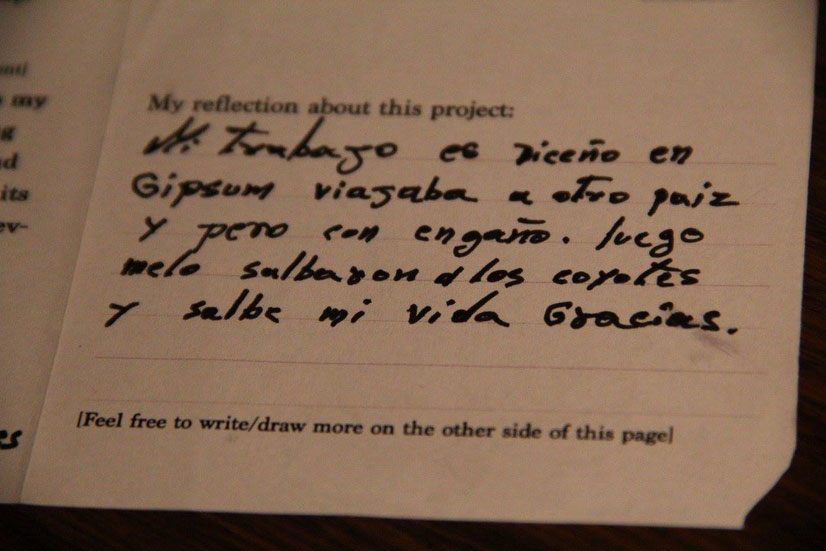 my
g
d
its
ev-
es
My reflection about this project:
Mi trabago es diceño en
Gipsum viagaba a otro paiz
y pero con engaño. luego
melo salbaron d los coyotes
y salbe mi vida Gracias.
[Feel free to write/draw more on the other side of this page]